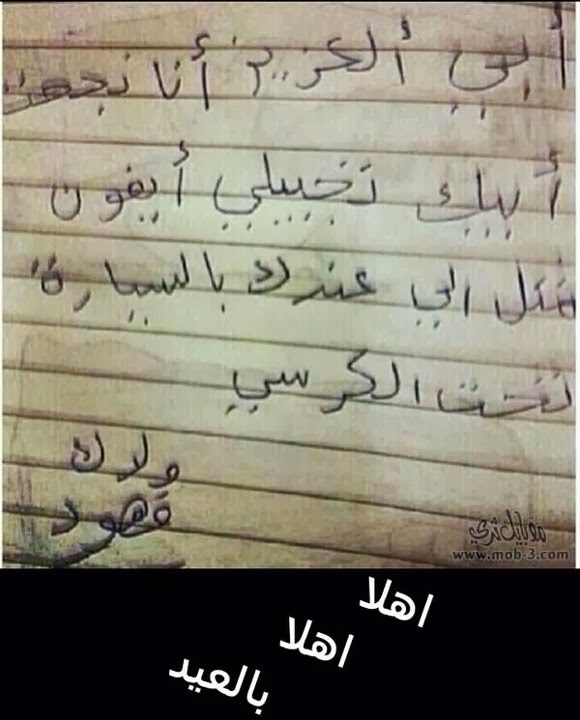 أبي ألعزيز أنا نجحت
أبيك تجيبلي أيفون
مثل الي عندك بالسيارة
تحت الكرسي
ولدك
فهود
موبايل ثري
www.mob-3.com
اهلا
اهلا
بالعيد